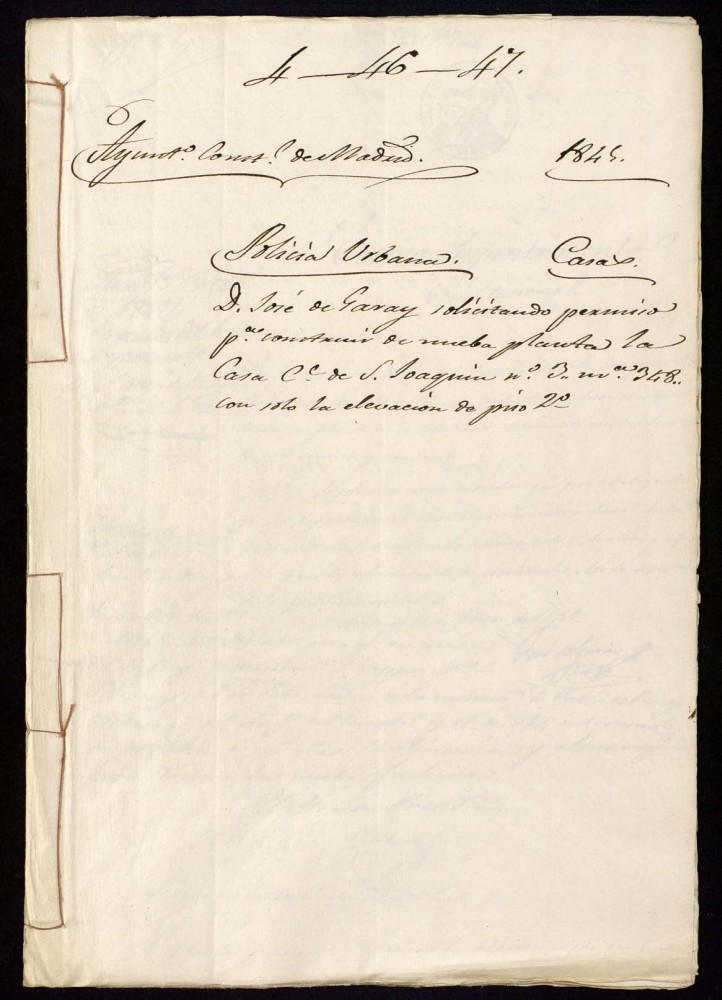 4—46—47.
Ayunt.º Const.l de Madrid. 1845.
Policia Urbana. Casas.
D. José de Garay solicitando permiso
p.a construir de nueba planta la
Casa C.e de S. Joaquin n.º 3. m.a 348..
con solo la elevacion de piso 2º